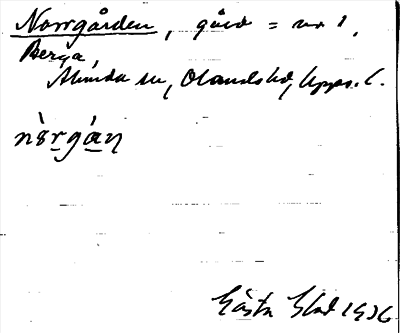 Norrgården, gård = nr 1,
Berga,
Almunda sn, Olands hd, Upps. l.
nòrgáɳ
Gösta Blad 1936